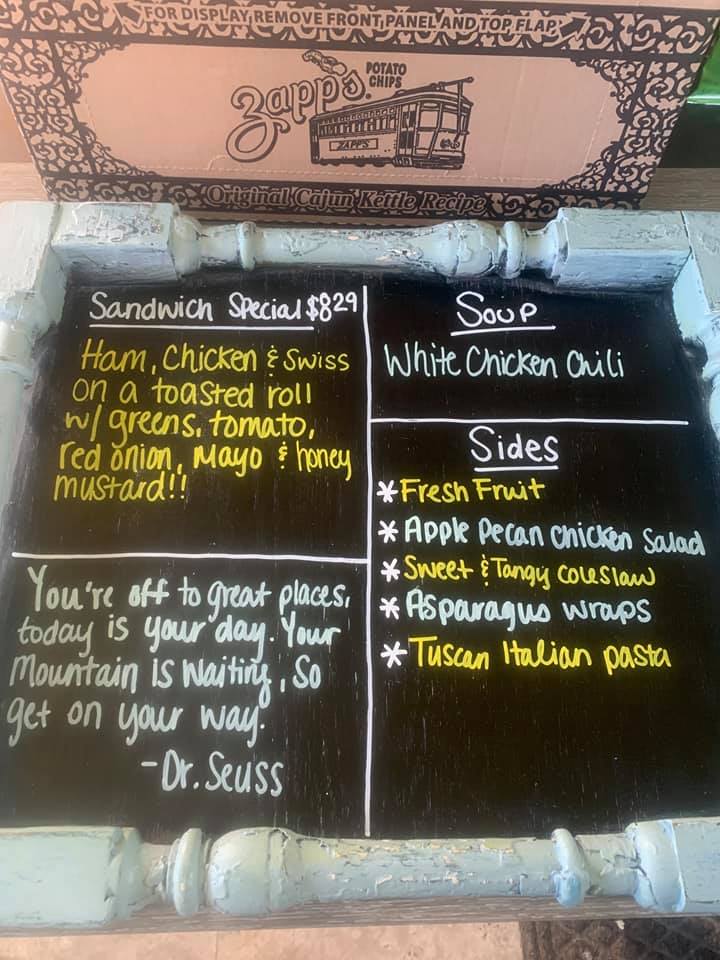 FOR DISPLAY, REMOVE FRONT PANEL AND TOP FLAP
Zapp's POTATO
CHIPS
ZAPP'S
Original Cajun Kettle Recipe
Sandwich Special $8.29
Ham, Chicken & Swiss
on a toasted roll
w/ greens, tomato,
red onion, Mayo & honey
mustard!!
You're off to great places,
today is your day. Your
Mountain is Waiting, So
get on your way.
-Dr. Seuss
Soup
White Chicken Chili
Sides
*Fresh Fruit
*Apple Pecan Chicken Salad
*Sweet & Tangy coleslaw
*Asparagus wraps
*Tuscan Italian pasta